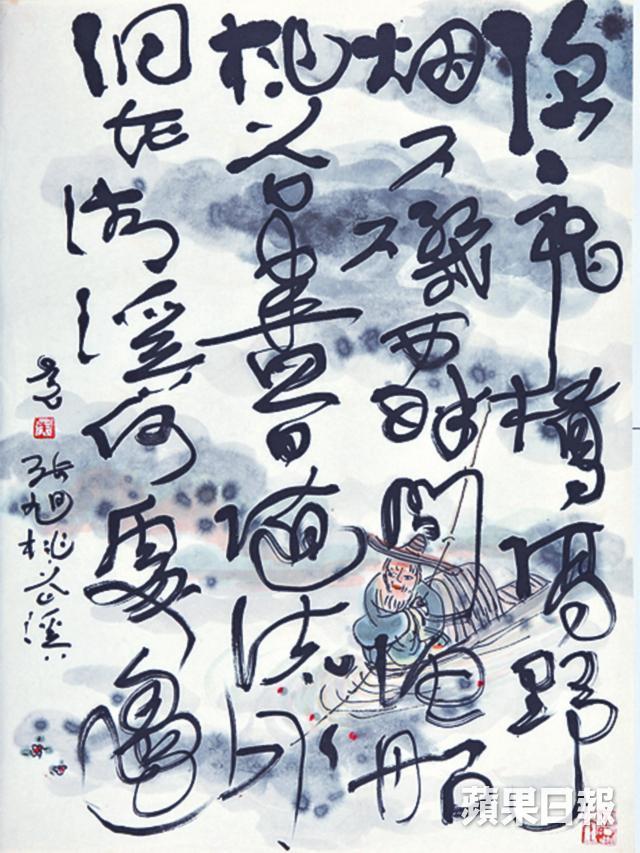 隱〻飛橋隔野
烟石磯西畔問漁船
桃花盡日隨流水
洞在清溪何處邊
張旭桃花溪
蘋果日報